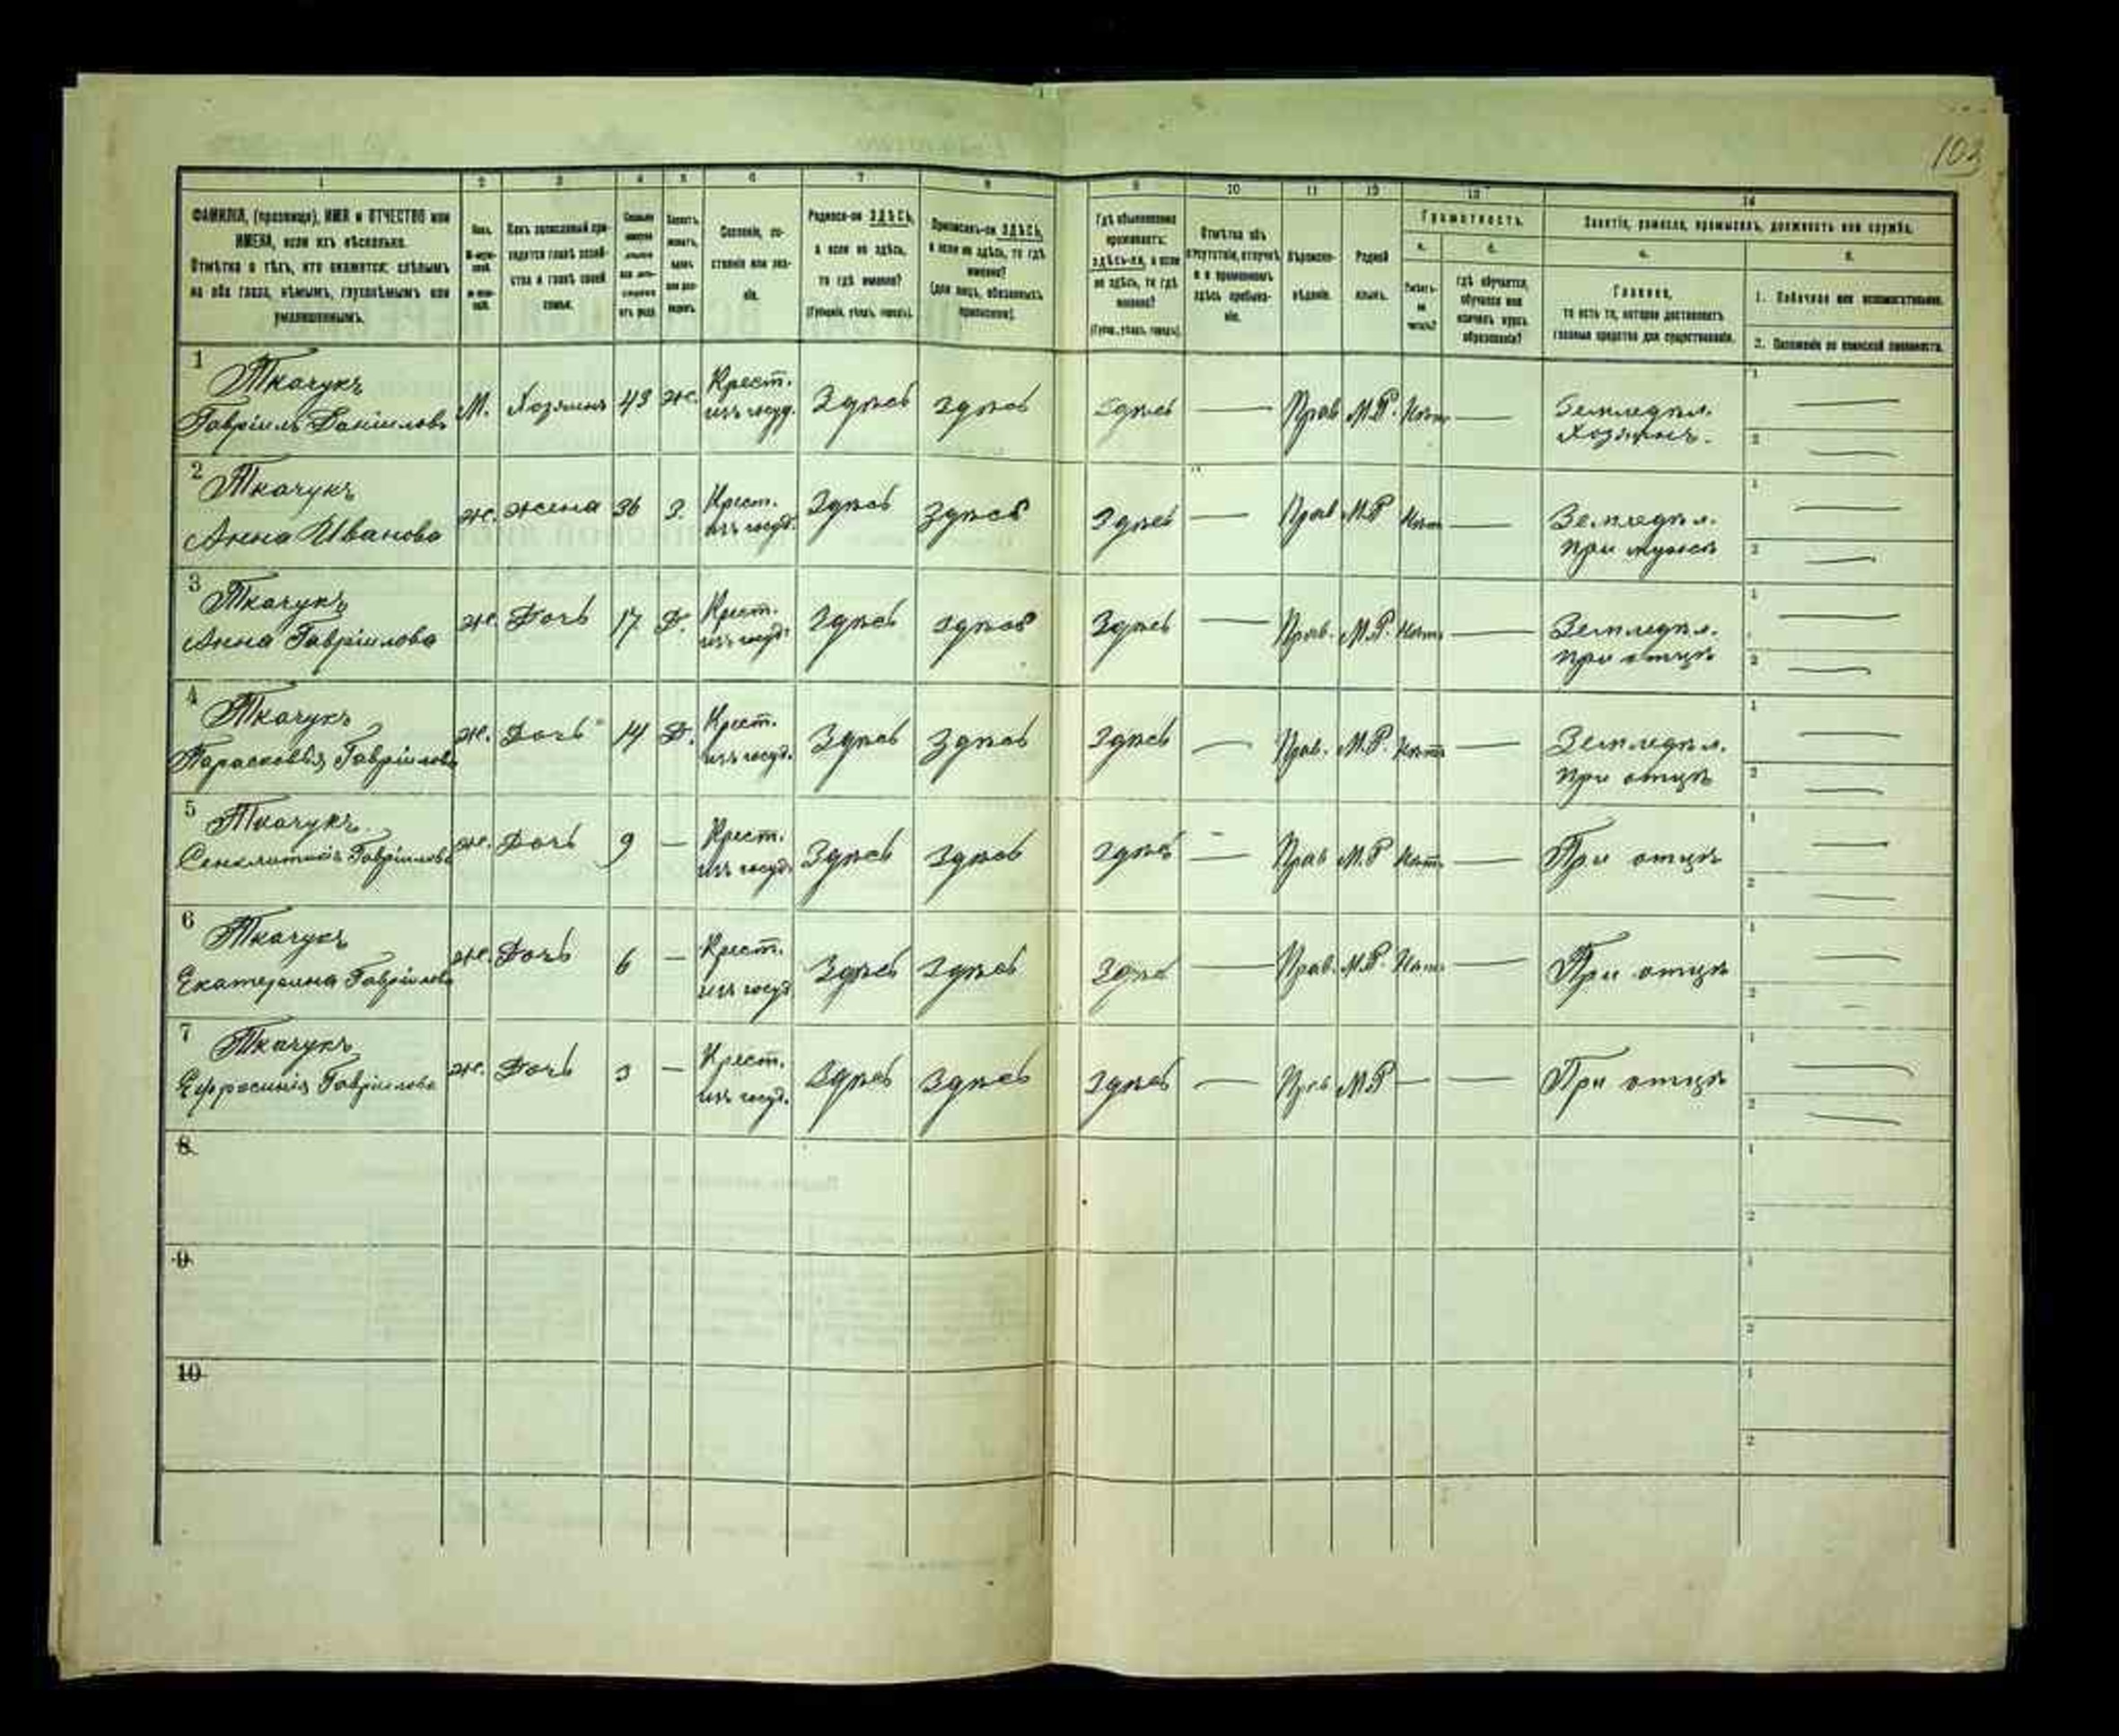 103
1 2 3 4 5 6 7 8 9 10 11 12 13 14
ФАМИЛІЯ, (прозвище), ИМЯ и ОТЧЕСТВО или
ИМЕНА, если ихъ нѣсколько.
Отмѣтка о тѣхъ, кто окажется: слѣпымъ
на оба глаза, нѣмымъ, глухонѣмымъ или
умалишеннымъ.
Какъ записанный при-
ходится главѣ хозяй-
ства и главѣ своей
семьи.
Сословіе, со-
стояніе или зва-
ніе.
Родился-ли ЗДѢСЬ,
а если не здѣсь,
то гдѣ именно?
(Губернія, уѣздъ, городъ).
Приписанъ-ли ЗДѢСЬ,
а если не здѣсь, то гдѣ
именно?
(для лицъ, обязанныхъ
припискою).
Гдѣ обыкновенно
проживаетъ:
здѣсь-ли, а если
не здѣсь, то гдѣ
именно?
(Губер., уѣздъ, городъ).
Отмѣтка объ
отсутствіи, отлучкѣ
и о временномъ
здѣсь пребыва-
ніи.
Вѣроиспо-
вѣданіе.
Родной
языкъ.
Грамотность.
а. б.
Умѣетъ-
ли
читать?
гдѣ обучается,
обучался или
кончилъ курсъ
образованія?
Занятіе, ремесло, промыселъ, должность или служба.
а. б.
Главное,
то есть то, которое доставляетъ
главныя средства для существованія.
1. Побочное или вспомогательное.
2. Положеніе по воинской повинности.
1 Ткачукъ
Гавріилъ Даніиловъ М. Хозяинъ 43 Ж. Крест. изъ госуд. Здѣсь Здѣсь Здѣсь — Прав М.Р. Нѣтъ — Земледѣл. Хозяинъ. 1 — 2 —
2 Ткачукъ
Анна Иванова Ж. Жена 36 З. Крест. изъ госуд. Здѣсь Здѣсь Здѣсь — Прав М.Р Нѣтъ — Земледѣл. при мужѣ 1 — 2 —
3 Ткачукъ
Анна Гавріилова Ж. Дочь 17 Д. Крест. изъ госуд. Здѣсь Здѣсь Здѣсь — Прав. М.Р. Нѣтъ — Земледѣл. при отцѣ 1 — 2 —
4 Ткачукъ
Парасковія Гавріилова Ж. Дочь 14 Д. Крест. изъ госуд. Здѣсь Здѣсь Здѣсь — Прав. М.Р. Нѣтъ — Земледѣл. при отцѣ 1 — 2 —
5 Ткачукъ
Сенклитикія Гавріилова Ж. Дочь 9 — Крест. изъ госуд. Здѣсь Здѣсь Здѣсь — Прав М.Р Нѣтъ — При отцѣ 1 — 2 —
6 Ткачукъ
Екатерина Гавріилова Ж. Дочь 6 — Крест. изъ госуд. Здѣсь Здѣсь Здѣсь — Прав. М.Р. Нѣтъ — При отцѣ 1 — 2 —
7 Ткачукъ
Ефросинія Гавріилова Ж. Дочь 3 — Крест. изъ госуд. Здѣсь Здѣсь Здѣсь — Прав М.Р — — При отцѣ 1 — 2 —
8 1 2
9 1 2
10 1 2